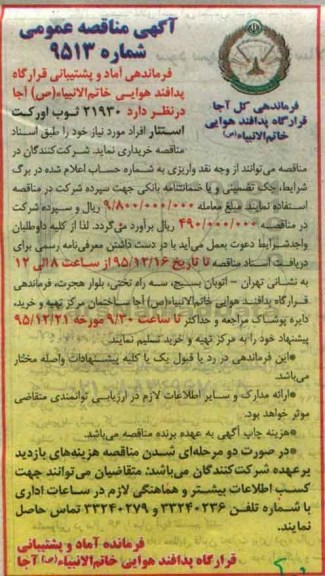 آگهی مناقصه عمومی
شماره ۹۵۱۳
فرماندهی آماد و پشتیبانی قرارگاه
پدافند هوایی خاتم‌الانبیاء(ص) آجا
فرماندهی کل آجا
قرارگاه پدافند هوایی
خاتم‌الانبیاء(ص)
درنظر دارد ۲۱۹۳۰ ثوب اورکت
استتار افراد مورد نیاز خود را طبق اسناد
مناقصه خریداری نماید. شرکت‌کنندگان در
مناقصه می‌توانند از وجه نقد واریزی به شماره حساب اعلام شده در برگ
شرایط، چک تضمینی و یا ضمانتنامه بانکی جهت سپرده شرکت در مناقصه
استفاده نمایند. مبلغ معامله ۹/۸۰۰/۰۰۰/۰۰۰ ریال و سپرده شرکت
در مناقصه ۴۹۰/۰۰۰/۰۰۰ ریال برآورد می‌گردد. لذا از کلیه داوطلبان
واجدشرایط دعوت بعمل می‌آید با در دست داشتن معرفی‌نامه رسمی برای
دریافت اسناد مناقصه تا تاریخ ۹۵/۱۲/۱۶ از ساعت ۸ الی ۱۲
به نشانی تهران - اتوبان بسیج، سه راه تختی، بلوار هجرت، فرماندهی
قرارگاه پدافند هوایی خاتم‌الانبیاء(ص) آجا ساختمان مرکز تهیه و خرید،
دایره پوشاک مراجعه و حداکثر تا ساعت ۹/۳۰ مورخه ۹۵/۱۲/۲۱
پیشنهاد خود را به مرکز تهیه و خرید تسلیم نمایند.
*این فرماندهی در رد یا قبول یک یا کلیه پیشنهادات واصله مختار
می‌باشد.
*ارائه مدارک و سایر اطلاعات لازم در ارزیابی توانمندی متقاضی
موثر خواهد بود.
*هزینه چاپ آگهی به عهده برنده مناقصه می‌باشد.
*در صورت دو مرحله‌ای شدن مناقصه هزینه‌های بازدید
برعهده شرکت‌کنندگان می‌باشد؛ متقاضیان می‌توانند جهت
کسب اطلاعات بیشتر و هماهنگی لازم در ساعات اداری
با شماره تلفن ۳۳۲۴۰۲۳۶ و ۳۳۲۴۰۲۷۹ تماس حاصل
نمایند.
فرمانده آماد و پشتیبانی
قرارگاه پدافند هوایی خاتم‌الانبیاء(ص) آجا